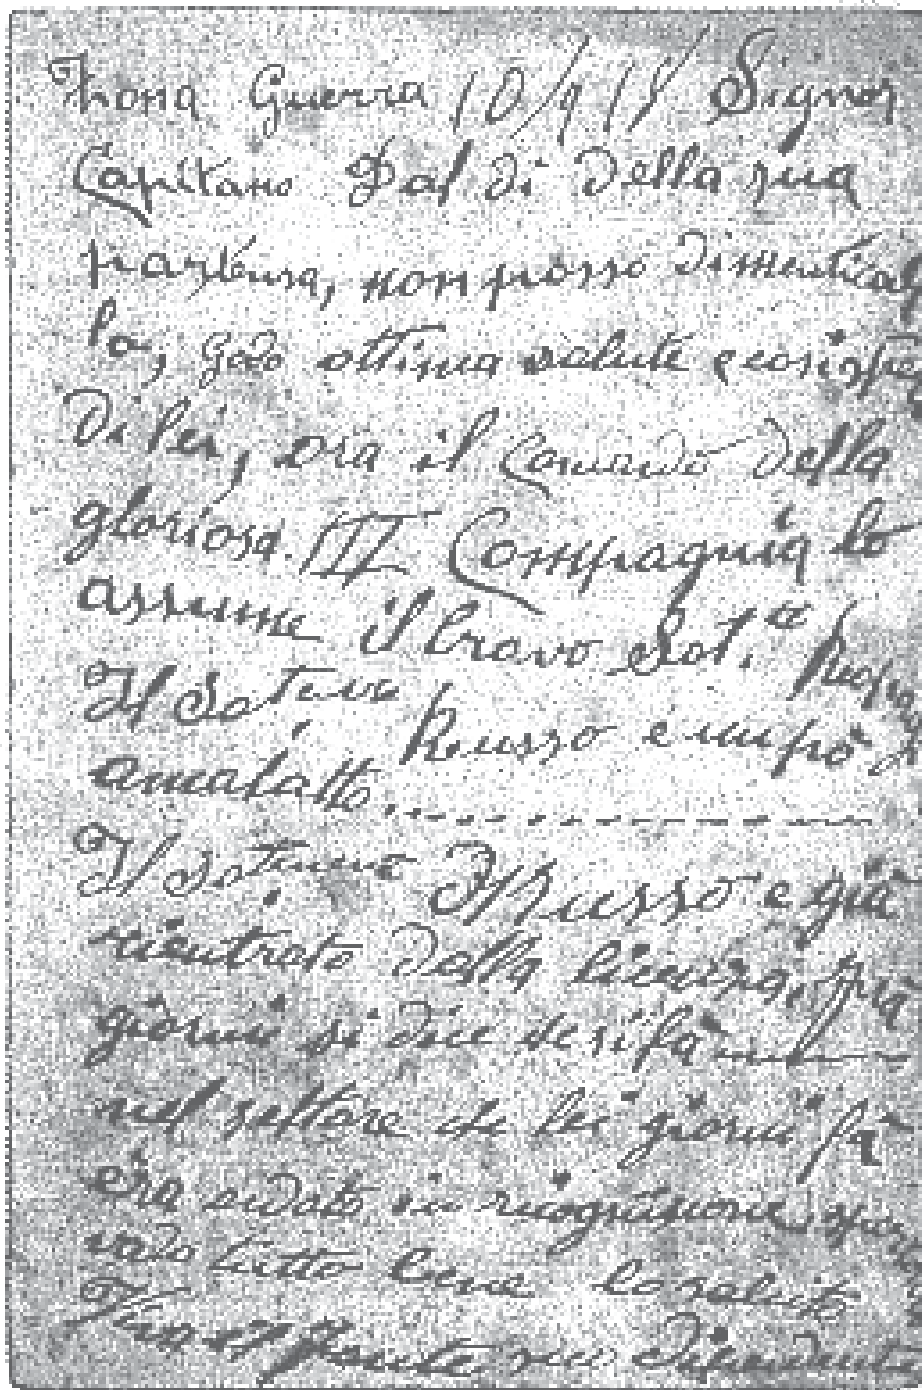 Zona Guerra 10/9 18/ Signor
Capitano Dal di della sua
partenza, non posso dimenticar
la, godo ottima salute e così spero
di lei, ora il comando della
gloriosa III Compagnia lo
assume il bravo
Il Russo è un pò
amalatto
Il Russo e già
rientrato dalla licenza, fra
giorni si dice se si fà
nel settore che lei giorni fà
era andato in ricognizione
vadi tutto bene lo saluto
suo dipendente